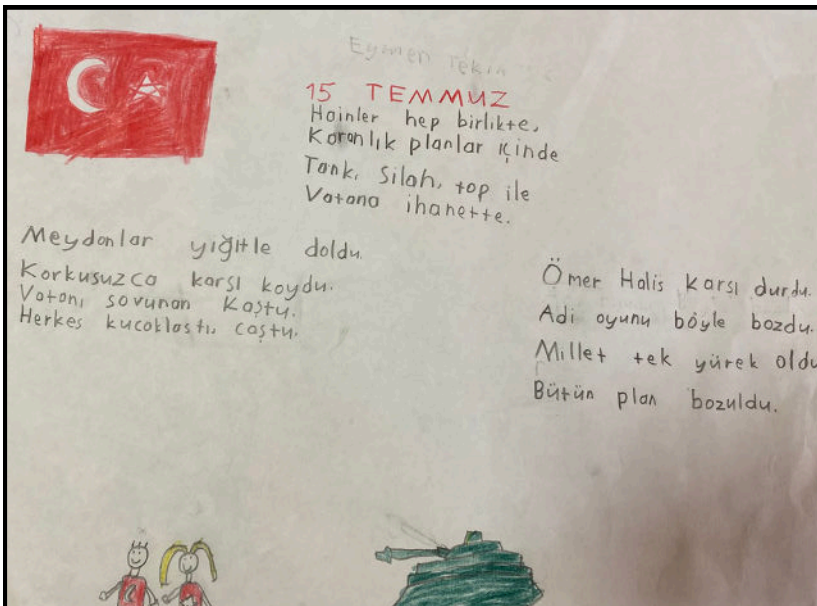 Eymen Tekin
15 TEMMUZ
Hainler hep birlikte,
Karanlık planlar içinde
Tank, silah, top ile
Vatana ihanette.
Meydanlar yiğitle doldu.
Korkusuzca karsı koydu.
Vatanı savunan Kaştu.
Herkes kucaklastı, castu.
Ömer Halis Karsı durdu.
Adi oyunu böyle bozdu.
Millet tek yürek oldu
Bütün plan bozuldu.